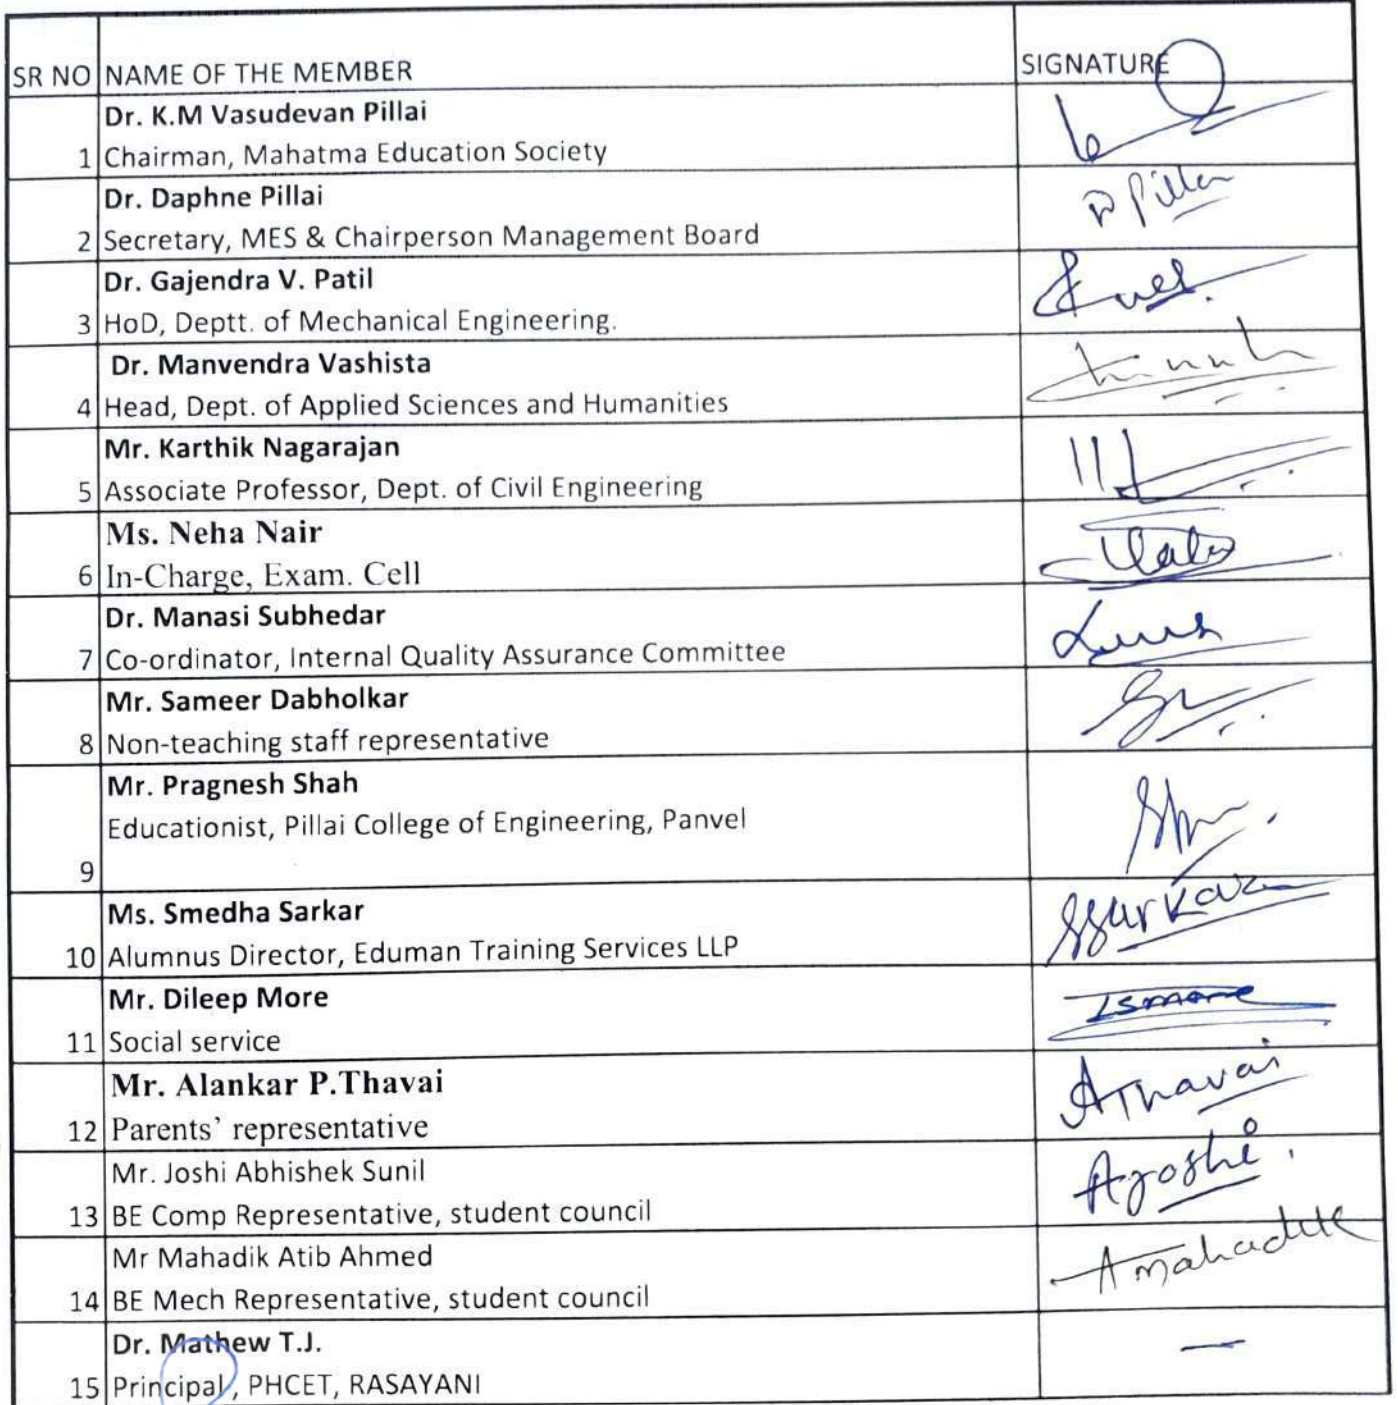 SR NO NAME OF THE MEMBER SIGNATURE
Dr. K.M Vasudevan Pillai
1 Chairman, Mahatma Education Society
Dr. Daphne Pillai
2 Secretary, MES & Chairperson Management Board
D Pillai
Dr. Gajendra V. Patil
3 HoD, Deptt. of Mechanical Engineering.
Dr. Manvendra Vashista
4 Head, Dept. of Applied Sciences and Humanities
Mr. Karthik Nagarajan
5 Associate Professor, Dept. of Civil Engineering
Ms. Neha Nair
6 In-Charge, Exam. Cell
Dr. Manasi Subhedar
7 Co-ordinator, Internal Quality Assurance Committee
Mr. Sameer Dabholkar
8 Non-teaching staff representative
Mr. Pragnesh Shah
Educationist, Pillai College of Engineering, Panvel
9
Ms. Smedha Sarkar
10 Alumnus Director, Eduman Training Services LLP
SSarkar
Mr. Dileep More
11 Social service
Mr. Alankar P.Thavai
12 Parents’ representative
AThavai
Mr. Joshi Abhishek Sunil
13 BE Comp Representative, student council
AJoshi.
Mr Mahadik Atib Ahmed
14 BE Mech Representative, student council
Amahadik
Dr. Mathew T.J.
15 Principal, PHCET, RASAYANI
—